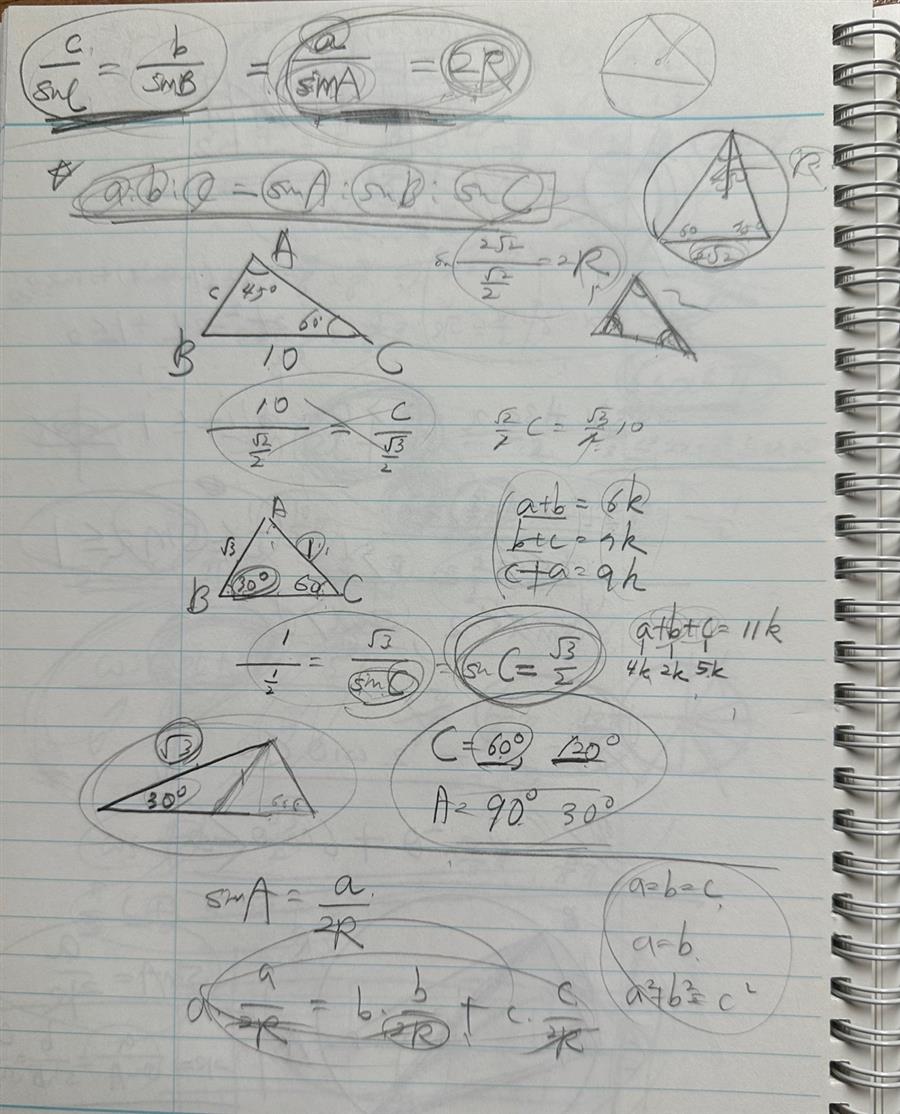 c/sinC = b/sinB = a/sinA = 2R
☆ a:b:c = sinA : sinB : sinC
R
60
2√2
2√2/(√2/2) = 2R
A
c 45°
60°
B 10 C
10/(√2/2) = c/(√3/2)
√2/2 C = √3/2 10
a+b = 6k
b+c = 7k
c+a = 9k
A
√3 1
B 30° 60 C
a+b+c = 11k
4k 2k 5k
1/(1/2) = √3/sinC = sinC = √3/2
√3
30° 1
C = 60° 120°
A = 90° 30°
sinA = a/2R
a=b=c
a=b
a²+b²=c²
a · a/2R = b · b/2R + c · c/2R